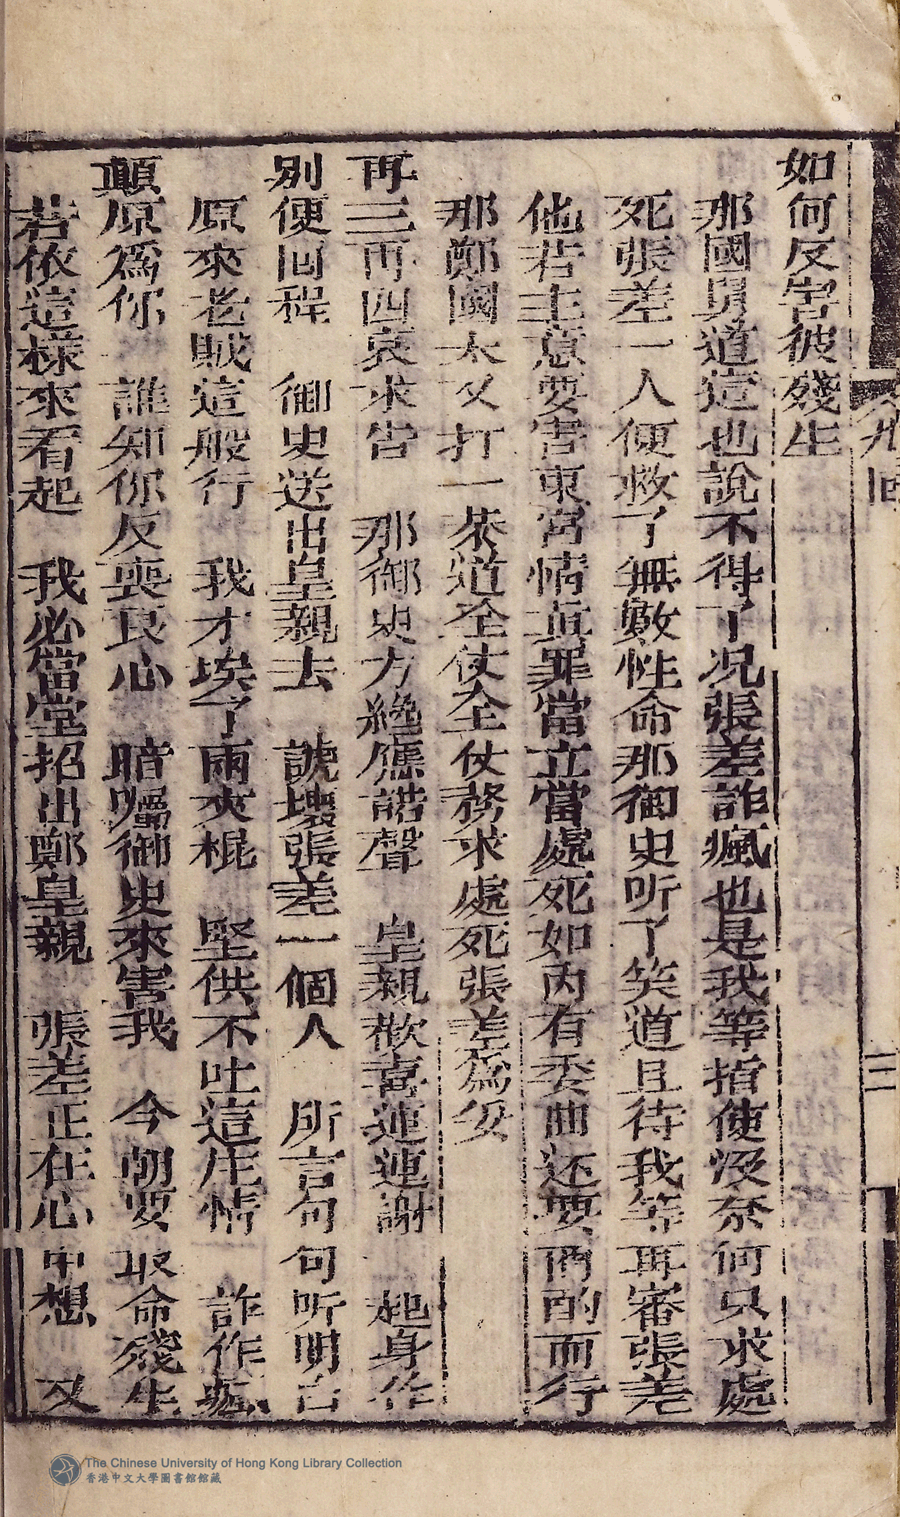 如何反害彼殘生
那國舅道這也說不得了况張差詐瘋也是我等指使没奈何只求處
死張差一人便救了無數性命那御史听了笑道且待我等再審張差
他若主意要害東宮情真罪當立當處死如内有委曲还要酌而行
那鄭國太又打一恭道全仗全仗務求處死張差為妥
再三再四哀求告 那御史方纔應諾聲 皇親歡喜連連謝 起身作
别便回程 御史送出皇親去 諕壞張差一個人 所言句句听明白
原來老賊這般行 我才埃了兩夾棍 堅供不吐這庄情 詐作瘋
顛原為你 誰知你反喪良心 暗囑御史來害我 今朝要取命殘生
若依這樣來看起 我必當堂招出鄭皇親 張差正在心中想 又
九回
三
The Chinese University of Hong Kong Library Collection
香港中文大學圖書館館藏